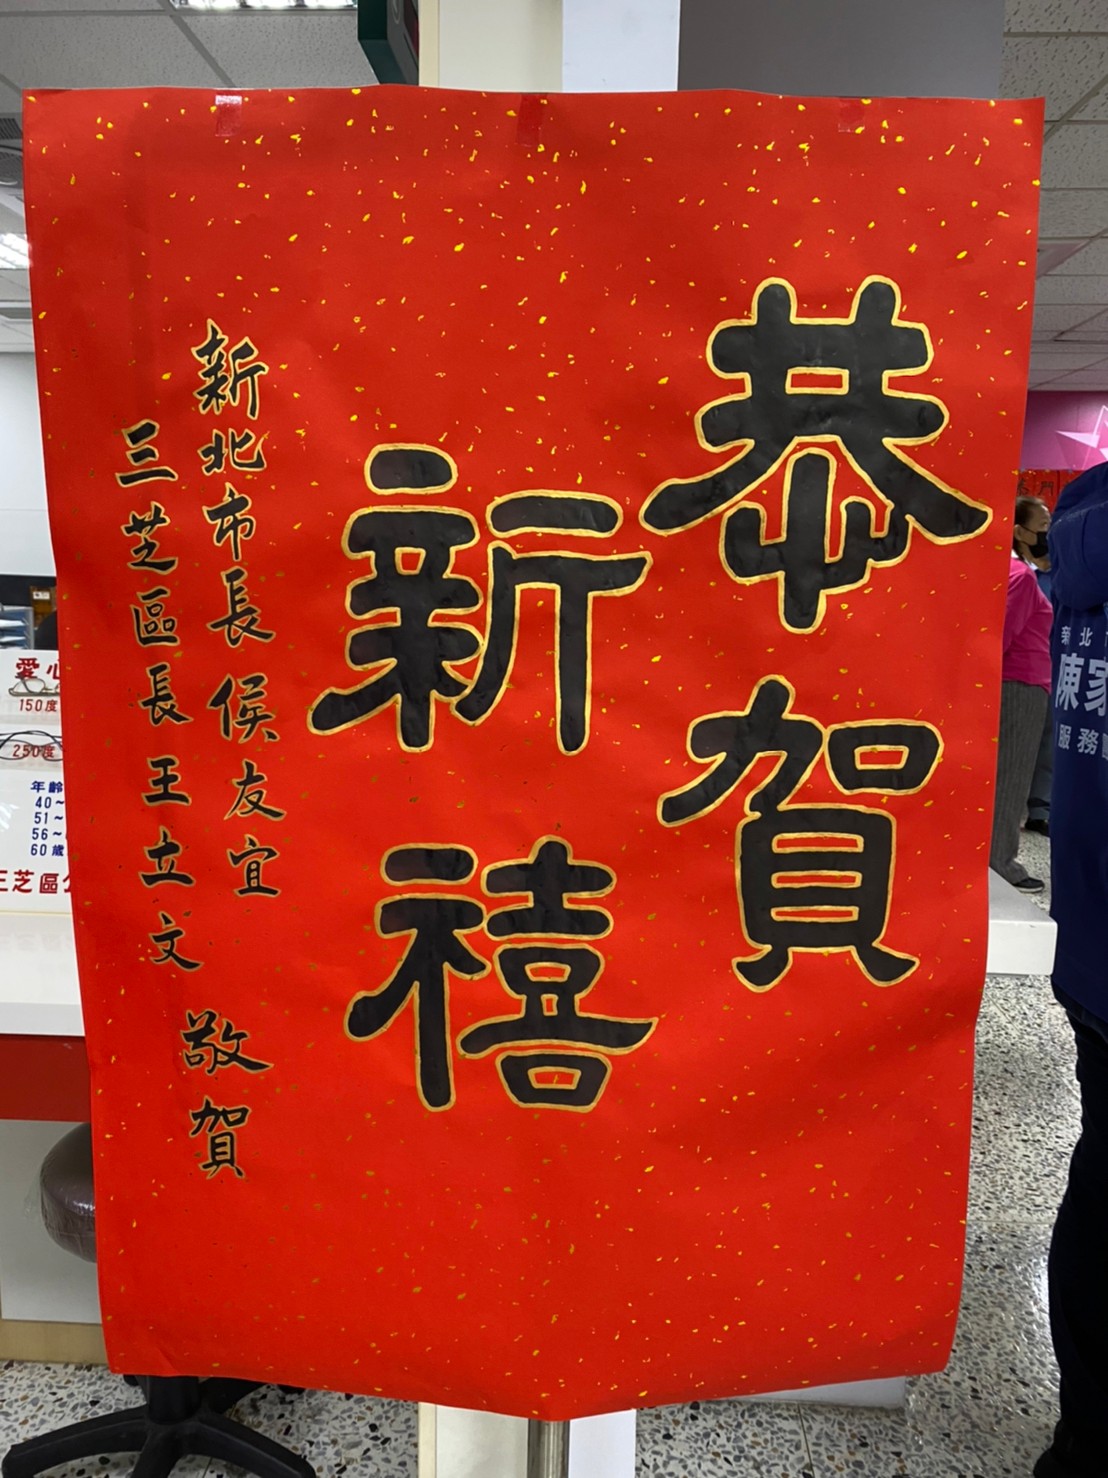 恭賀
新禧
新北市長 侯友宜
三芝區長 王立文
敬賀
愛心
150度
250度
年齡
40~
51~
56~
60歲
三芝區公
新北
陳家
服務